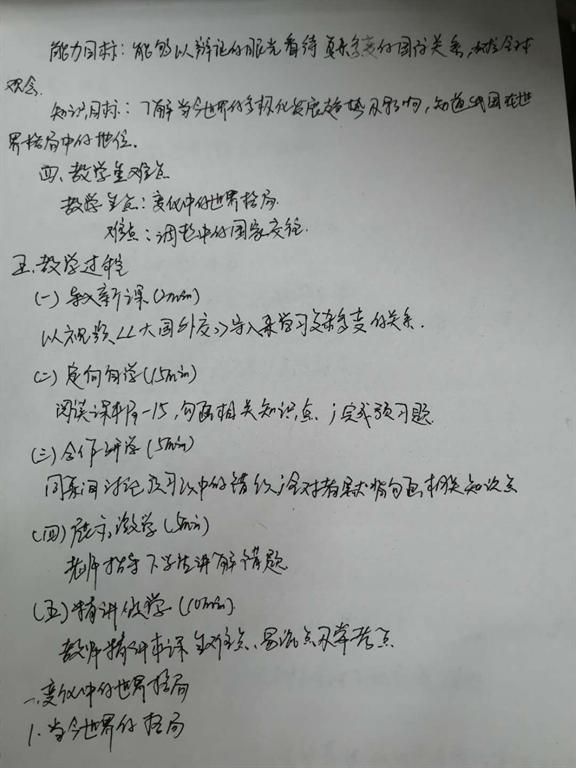 能力目标：能够以辩证的眼光看待复杂多变的国际关系，树立全球
观念.
知识目标：了解当今世界的多极化发展趋势及影响，知道我国在世
界格局中的地位.
四、教学重难点
教学重点：变化中的世界格局.
难点：调整中的国家交往.
五、教学过程
(一) 导入新课(2min)
以视频《大国外交》导入来学习复杂多变的关系.
(二) 定向自学(15min)
阅读课本-15，勾画相关知识点，完成预习题.
(三) 合作研学(5min)
同桌间讨论 预习中的错 全对者 勾画相关知识点
(四) 展示激学(5min)
老师指导下学生讲解错题
(五) 精讲促学(10min)
教师精讲本课重难点、易混点及常考点
一、变化中的世界格局
1. 当今世界的格局